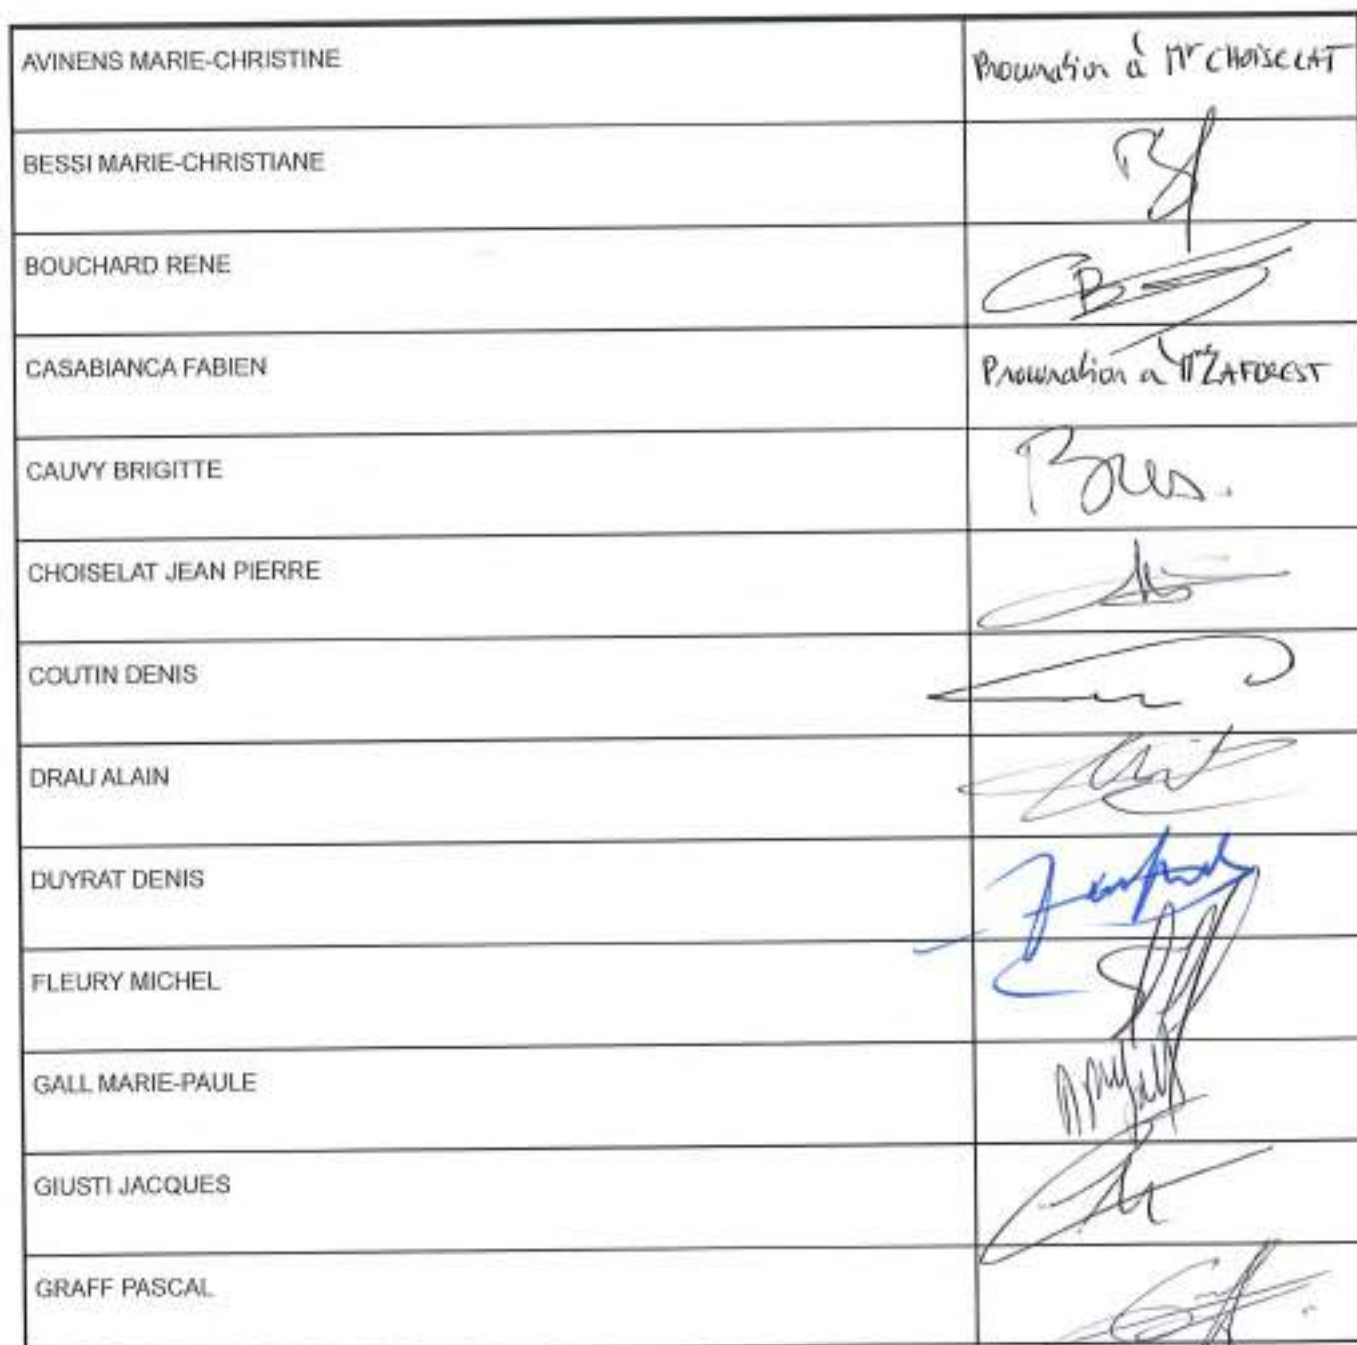 AVINENS MARIE-CHRISTINE Procuration à Mr CHOISELAT
BESSI MARIE-CHRISTIANE
BOUCHARD RENE
CASABIANCA FABIEN Procuration a Mme LAFOREST
CAUVY BRIGITTE
CHOISELAT JEAN PIERRE
COUTIN DENIS
DRAU ALAIN
DUYRAT DENIS
FLEURY MICHEL
GALL MARIE-PAULE
GIUSTI JACQUES
GRAFF PASCAL